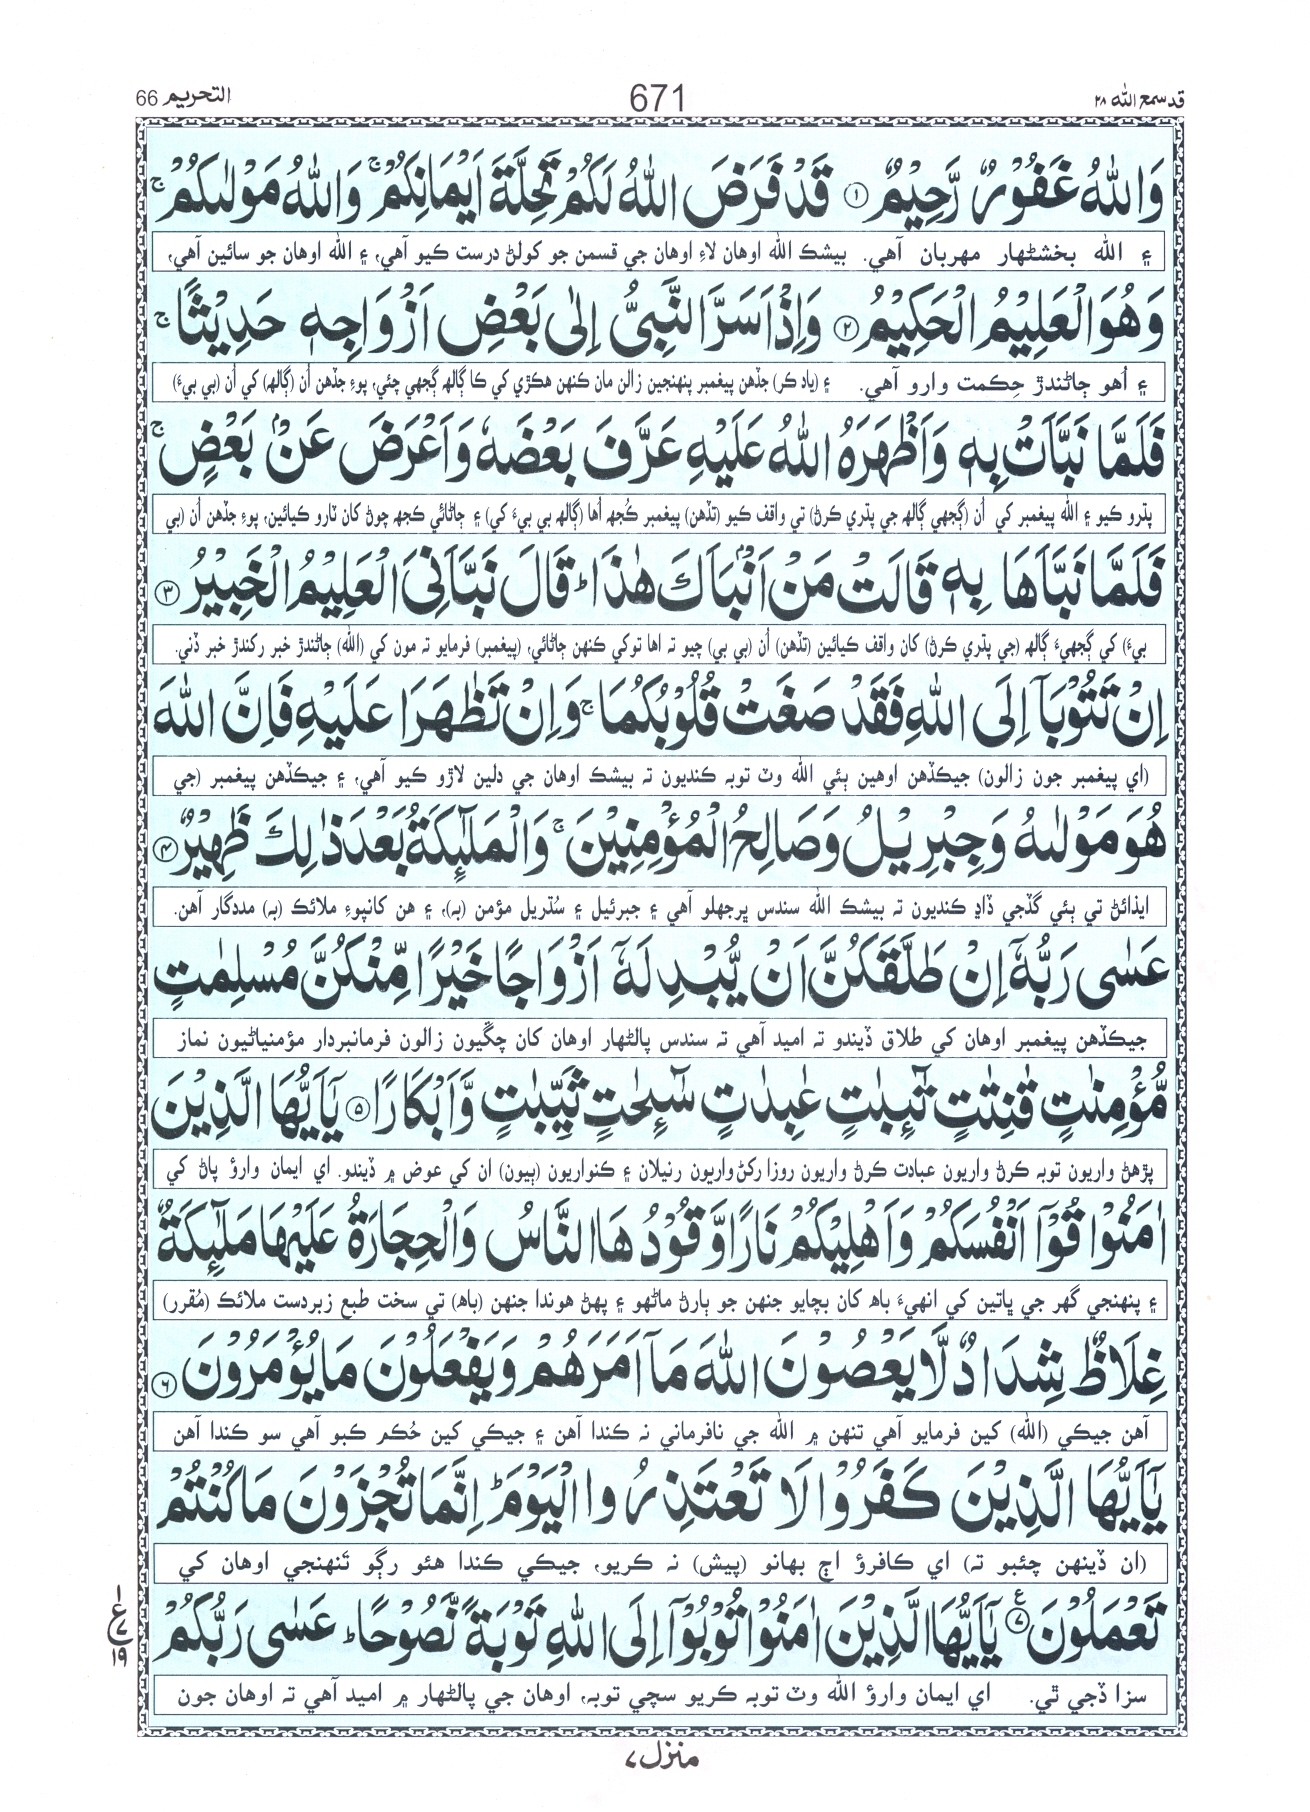 قد سمع الله ٢٨
671
التحريم 66
وَاللّٰهُ غَفُوْرٌ رَّحِيْمٌ ۝١ قَدْ فَرَضَ اللّٰهُ لَكُمْ تَحِلَّةَ اَيْمَانِكُمْ ۚ وَاللّٰهُ مَوْلٰىكُمْ ۚ
۽ الله بخشڻھار مھربان آھي. بيشڪ الله اوھان لاءِ اوھان جي قسمن جو کولڻ درست ڪيو آھي، ۽ الله اوھان جو سائين آھي،
وَهُوَ الْعَلِيْمُ الْحَكِيْمُ ۝٢ وَاِذْ اَسَرَّ النَّبِيُّ اِلٰى بَعْضِ اَزْوَاجِهٖ حَدِيْثًا ۚ
۽ اُھو ڄاڻندڙ حِڪمت وارو آھي. ۽ (ياد ڪر) جڏھن پيغمبر پنھنجين زالن مان ڪنھن ھڪڙي کي ڪا ڳالھ ڳجھي چئي، پوءِ جڏھن اُن (ڳالھ) کي اُن (بي بيءَ)
فَلَمَّا نَبَّاَتْ بِهٖ وَاَظْهَرَهُ اللّٰهُ عَلَيْهِ عَرَّفَ بَعْضَهٗ وَاَعْرَضَ عَنْۢ بَعْضٍ ۚ
پڌرو ڪيو ۽ الله پيغمبر کي اُن (ڳجھي ڳالھ جي پڌري ڪرڻ) تي واقف ڪيو (تڏھن) پيغمبر ڪُجھ اُھا (ڳالھ بي بيءَ کي) ۽ ڄاڻائي ڪجھ چوڻ کان ٽارو ڪيائين، پوءِ جڏھن اُن (بي
فَلَمَّا نَبَّاَهَا بِهٖ قَالَتْ مَنْ اَنْۢبَاَكَ هٰذَا ؕ قَالَ نَبَّاَنِيَ الْعَلِيْمُ الْخَبِيْرُ ۝٣
بيءَ) کي ڳجھيءَ ڳالھ (جي پڌري ڪرڻ) کان واقف ڪيائين (تڏھن) اُن (بي بي) چيو تہ اھا توکي ڪنھن ڄاڻائي، (پيغمبر) فرمايو تہ مون کي (الله) ڄاڻندڙ خبر رکندڙ خبر ڏني.
اِنْ تَتُوْبَاۤ اِلَى اللّٰهِ فَقَدْ صَغَتْ قُلُوْبُكُمَا ۚ وَاِنْ تَظٰهَرَا عَلَيْهِ فَاِنَّ اللّٰهَ
(اي پيغمبر جون زالون) جيڪڏھن اوھين ٻئي الله وٽ توبہ ڪنديون تہ بيشڪ اوھان جي دلين لاڙو ڪيو آھي، ۽ جيڪڏھن پيغمبر (جي
هُوَ مَوْلٰىهُ وَجِبْرِيْلُ وَصَالِحُ الْمُؤْمِنِيْنَ ۚ وَالْمَلٰٓئِكَةُ بَعْدَ ذٰلِكَ ظَهِيْرٌ ۝٤
ايذائڻ تي ٻئي گڏجي ڏاڍ ڪنديون تہ بيشڪ الله سندس پرجھلو آھي ۽ جبرئيل ۽ سُڌريل مؤمن (بہ)، ۽ ھن کانپوءِ ملائڪ (بہ) مددگار آھن.
عَسٰى رَبُّهٗۤ اِنْ طَلَّقَكُنَّ اَنْ يُّبْدِلَهٗۤ اَزْوَاجًا خَيْرًا مِّنْكُنَّ مُسْلِمٰتٍ
جيڪڏھن پيغمبر اوھان کي طلاق ڏيندو تہ اميد آھي تہ سندس پالڻھار اوھان کان چڱيون زالون فرمانبردار مؤمنياڻيون نماز
مُّؤْمِنٰتٍ قٰنِتٰتٍ تٰٓئِبٰتٍ عٰبِدٰتٍ سٰٓئِحٰتٍ ثَيِّبٰتٍ وَّاَبْكَارًا ۝٥ يٰۤاَيُّهَا الَّذِيْنَ
پڙھڻ واريون توبہ ڪرڻ واريون عبادت ڪرڻ واريون روزا رکڻ واريون رنيلان ۽ ڪنواريون (ٻيون) ان کي عوض ۾ ڏيندو. اي ايمان وارؤ پاڻ کي
اٰمَنُوْا قُوْۤا اَنْفُسَكُمْ وَاَهْلِيْكُمْ نَارًا وَّقُوْدُهَا النَّاسُ وَالْحِجَارَةُ عَلَيْهَا مَلٰٓئِكَةٌ
۽ پنھنجي گھر جي ڀاتين کي انھيءَ باھ کان بچايو جنھن جو ٻارڻ ماڻھو ۽ پھڻ ھوندا جنھن (باھ) تي سخت طبع زبردست ملائڪ (مُقرر)
غِلَاظٌ شِدَادٌ لَّا يَعْصُوْنَ اللّٰهَ مَاۤ اَمَرَهُمْ وَيَفْعَلُوْنَ مَا يُؤْمَرُوْنَ ۝٦
آھن جيڪي (الله) کين فرمايو آھي تنھن ۾ الله جي نافرماني نہ ڪندا آھن ۽ جيڪي کين حُڪم ڪبو آھي سو ڪندا آھن
يٰۤاَيُّهَا الَّذِيْنَ كَفَرُوْا لَا تَعْتَذِرُوا الْيَوْمَ ؕ اِنَّمَا تُجْزَوْنَ مَا كُنْتُمْ
(ان ڏينھن چئبو تہ) اي ڪافرؤ اڄ بھانو (پيش) نہ ڪريو، جيڪي ڪندا ھئو رڳو تنھنجي اوھان کي
تَعْمَلُوْنَ ۝٧ يٰۤاَيُّهَا الَّذِيْنَ اٰمَنُوْا تُوْبُوْۤا اِلَى اللّٰهِ تَوْبَةً نَّصُوْحًا ؕ عَسٰى رَبُّكُمْ
ع ١ ٧ ١٩
سزا ڏجي ٿي. اي ايمان وارؤ الله وٽ توبہ ڪريو سچي توبہ، اوھان جي پالڻھار ۾ اميد آھي تہ اوھان جون
منزل ٧